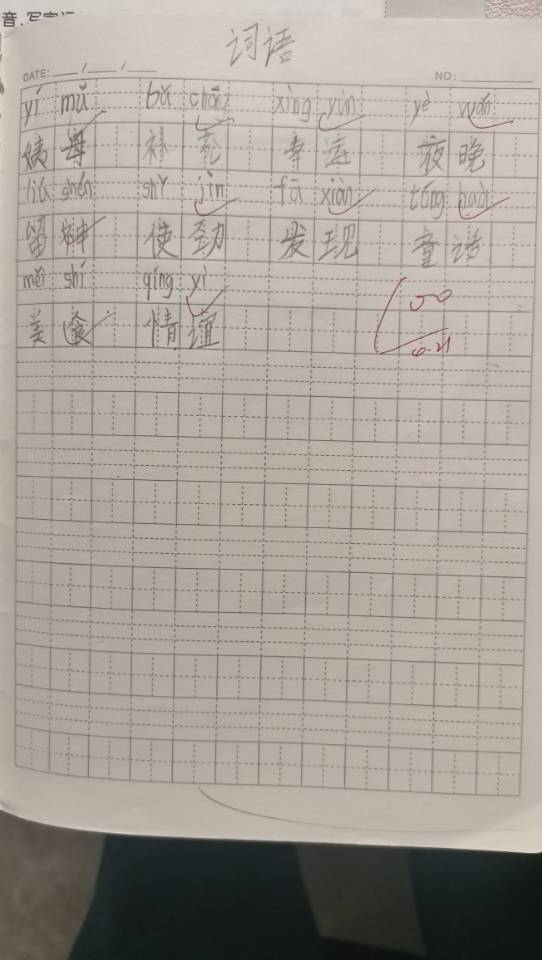 词语
DATE: / / NO:
yí mǔ bǔ chōng xìng yùn yè wǎn
姨母 补充 幸运 夜晚
liú shén shǐ jìn fā xiàn tóng huà
留神 使劲 发现 童话
měi shí qíng yì
美食 情谊
100
6.21